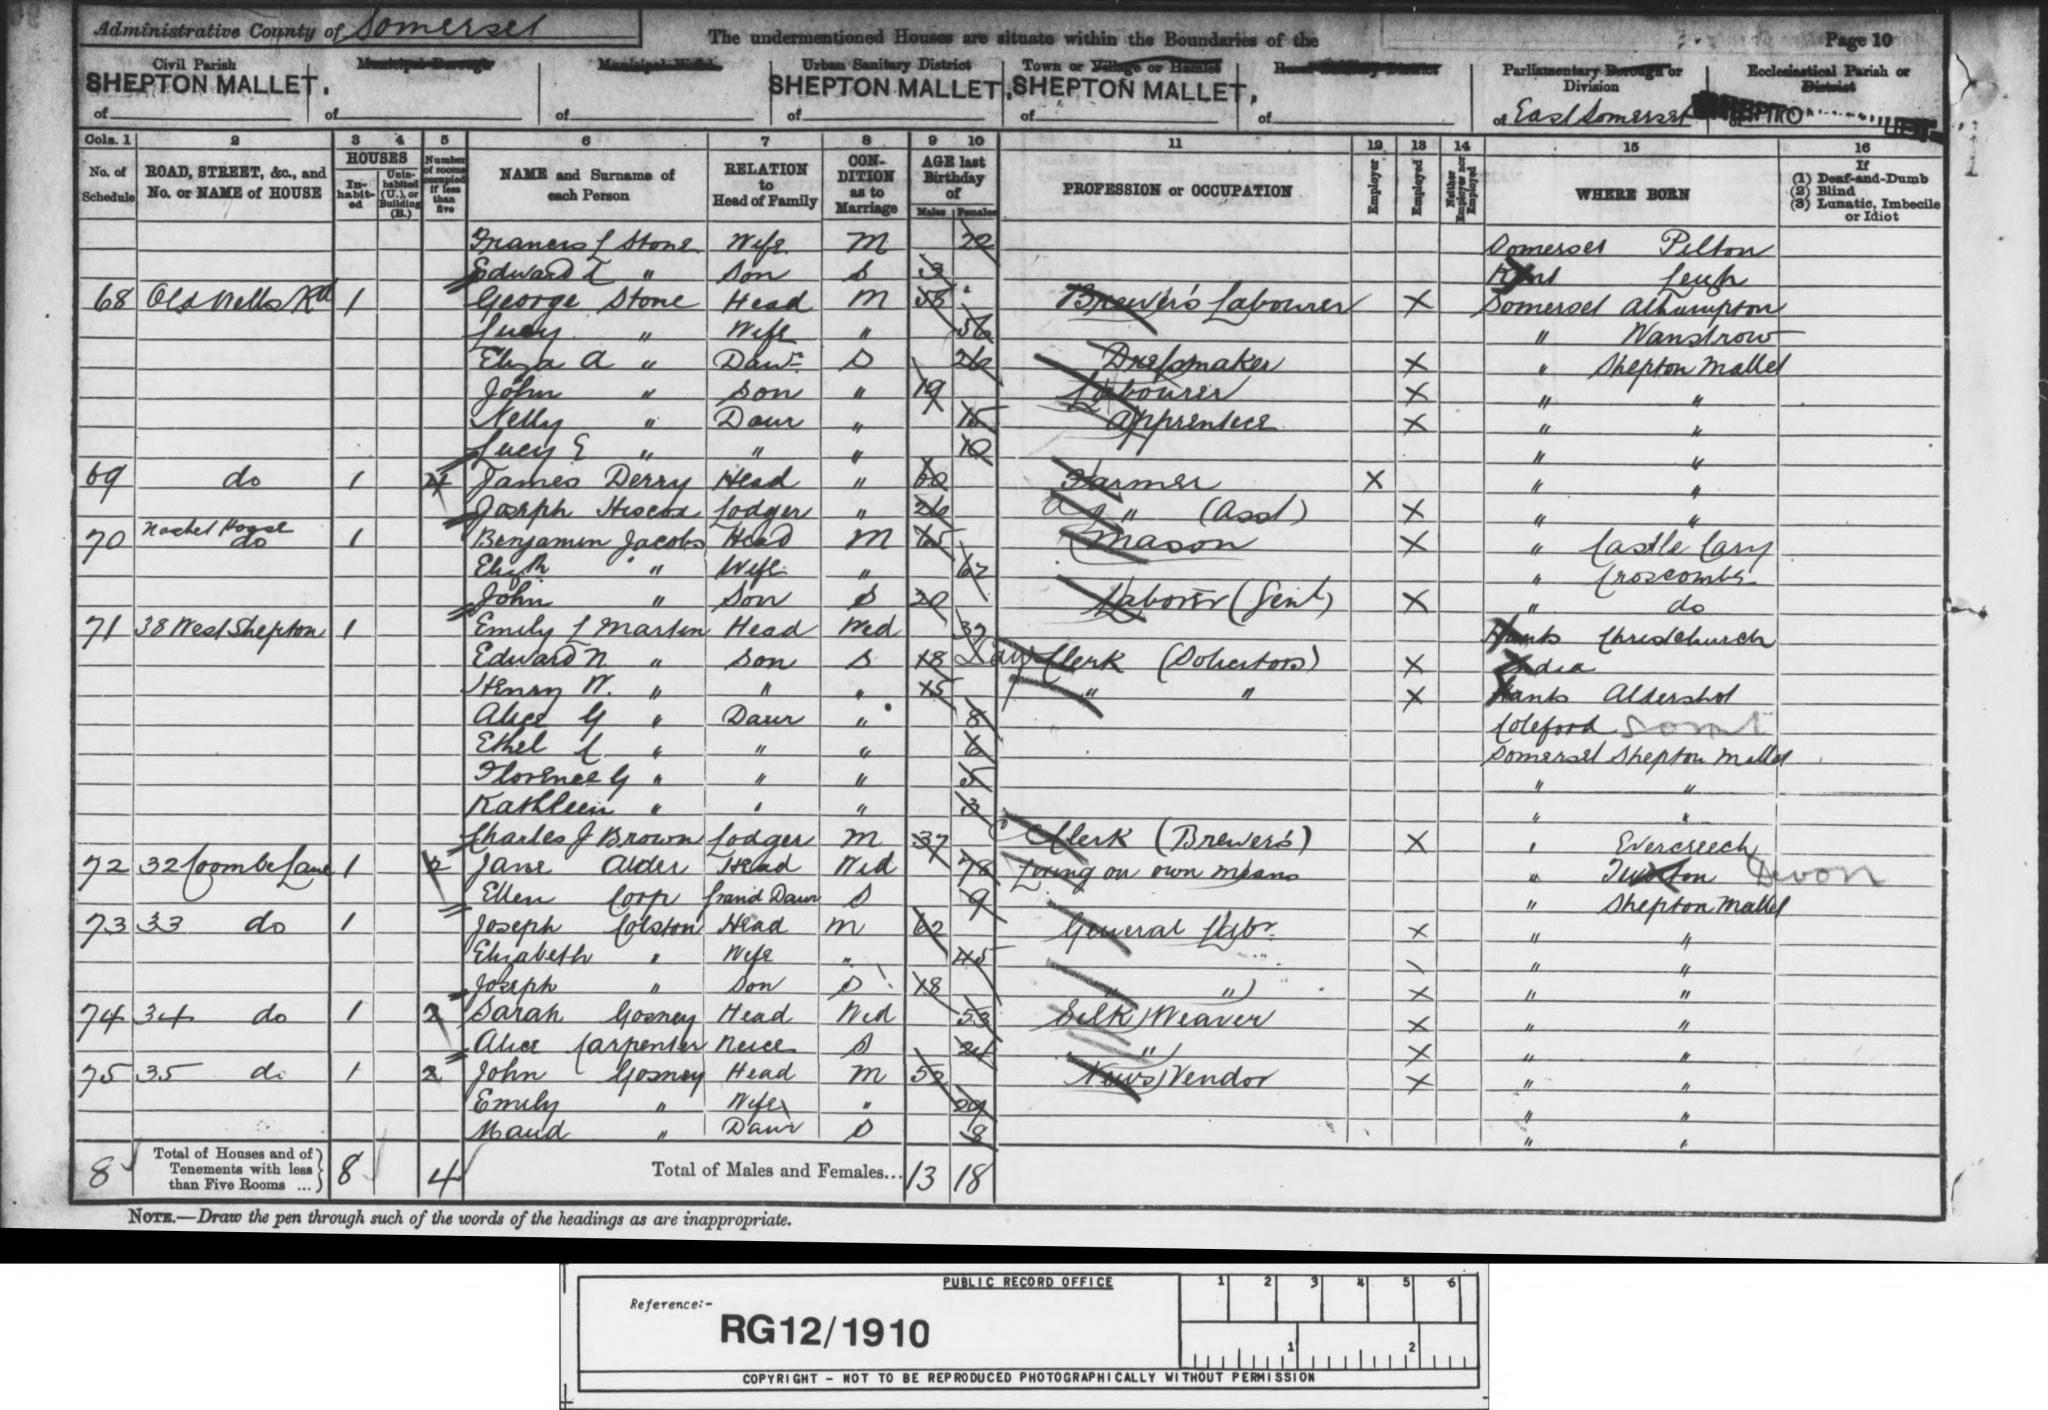 Administrative County of Somerset
The undermentioned Houses are situate within the Boundaries of the
Page 10
Civil Parish of SHEPTON MALLET.
Municipal Borough of
Municipal Ward of
Urban Sanitary District of SHEPTON MALLET.
Town or Village or Hamlet of SHEPTON MALLET.
Rural Sanitary District of
Parliamentary Borough or Division of East Somerset
Ecclesiastical Parish or District of
Cols. 1 2 3 4 5 6 7 8 9 10 11 12 13 14 15 16
No. of Schedule
ROAD, STREET, &c., and No. or NAME of HOUSE
HOUSES
Inhabited
Uninhabited (U.), or Building (B.)
Number of rooms occupied if less than five
NAME and Surname of each Person
RELATION to Head of Family
CONDITION as to Marriage
AGE last Birthday of
Males Females
PROFESSION or OCCUPATION
Employer
Employed
Neither Employer nor Employed
WHERE BORN
If
(1) Deaf-and-Dumb
(2) Blind
(3) Lunatic, Imbecile or Idiot
Frances L Stone Wife M 22 Somerset Pilton
Edward " Son S 3 Kent Leigh
68 Old Wells Rd 1 George Stone Head M Brewer's Labourer X Somerset Alhampton
Lucy " Wife " 56 " Wanstrow
Eliza A " Daur S 26 Dressmaker X " Shepton Mallet
John " Son " 19 Labourer X " "
Nelly " Daur " 15 Apprentice X " "
Lucy E " " " 10 " "
69 do 1 4 James Derry Head " 60 Farmer X " "
Joseph Hiscox Lodger " 26 " (Asst) X " "
70 House do 1 Benjamin Jacobs Head M 65 Mason X " Castle Cary
Elizth " Wife " 67 " Croscombe
John " Son S 20 Laborer (Genl) X " do
71 38 West Shepton 1 Emily L Martin Head Wed 37 Hants Christchurch
Edward N " Son S 18 Law Clerk (Solicitors) X India
Henry W. " " " 15 " " X Hants Aldershot
Alice G " Daur " 8 Coleford Somt
Ethel L " " " 6 Somerset Shepton Mallet
Florence G " " " 5 " "
Kathleen " " " 3 " "
Charles J Brown Lodger M 37 Clerk (Brewers) X " Evercreech
72 32 Coombe Lane 1 2 Jane Alder Head Wed 78 Living on own means " Devon
Ellen Corp Grand Daur S 9 " Shepton Mallet
73 33 do 1 Joseph Colston Head M 62 General Labr X " "
Elizabeth " Wife " 45 \ " "
Joseph " Son S 18 " " X " "
74 34 do 1 2 Sarah Gosney Head Wed 53 Silk Weaver X " "
Alice Carpenter Neice S 21 " X " "
75 35 do 1 2 John Gosney Head M News Vendor X " "
Emily " Wife " 29 " "
Maud " Daur S 8 " "
8 Total of Houses and of Tenements with less than Five Rooms ... 8 4 Total of Males and Females... 13 18
NOTE.—Draw the pen through such of the words of the headings as are inappropriate.
PUBLIC RECORD OFFICE
1 2 3 4 5 6
Reference:-
RG12/1910
1 2
COPYRIGHT - NOT TO BE REPRODUCED PHOTOGRAPHICALLY WITHOUT PERMISSION